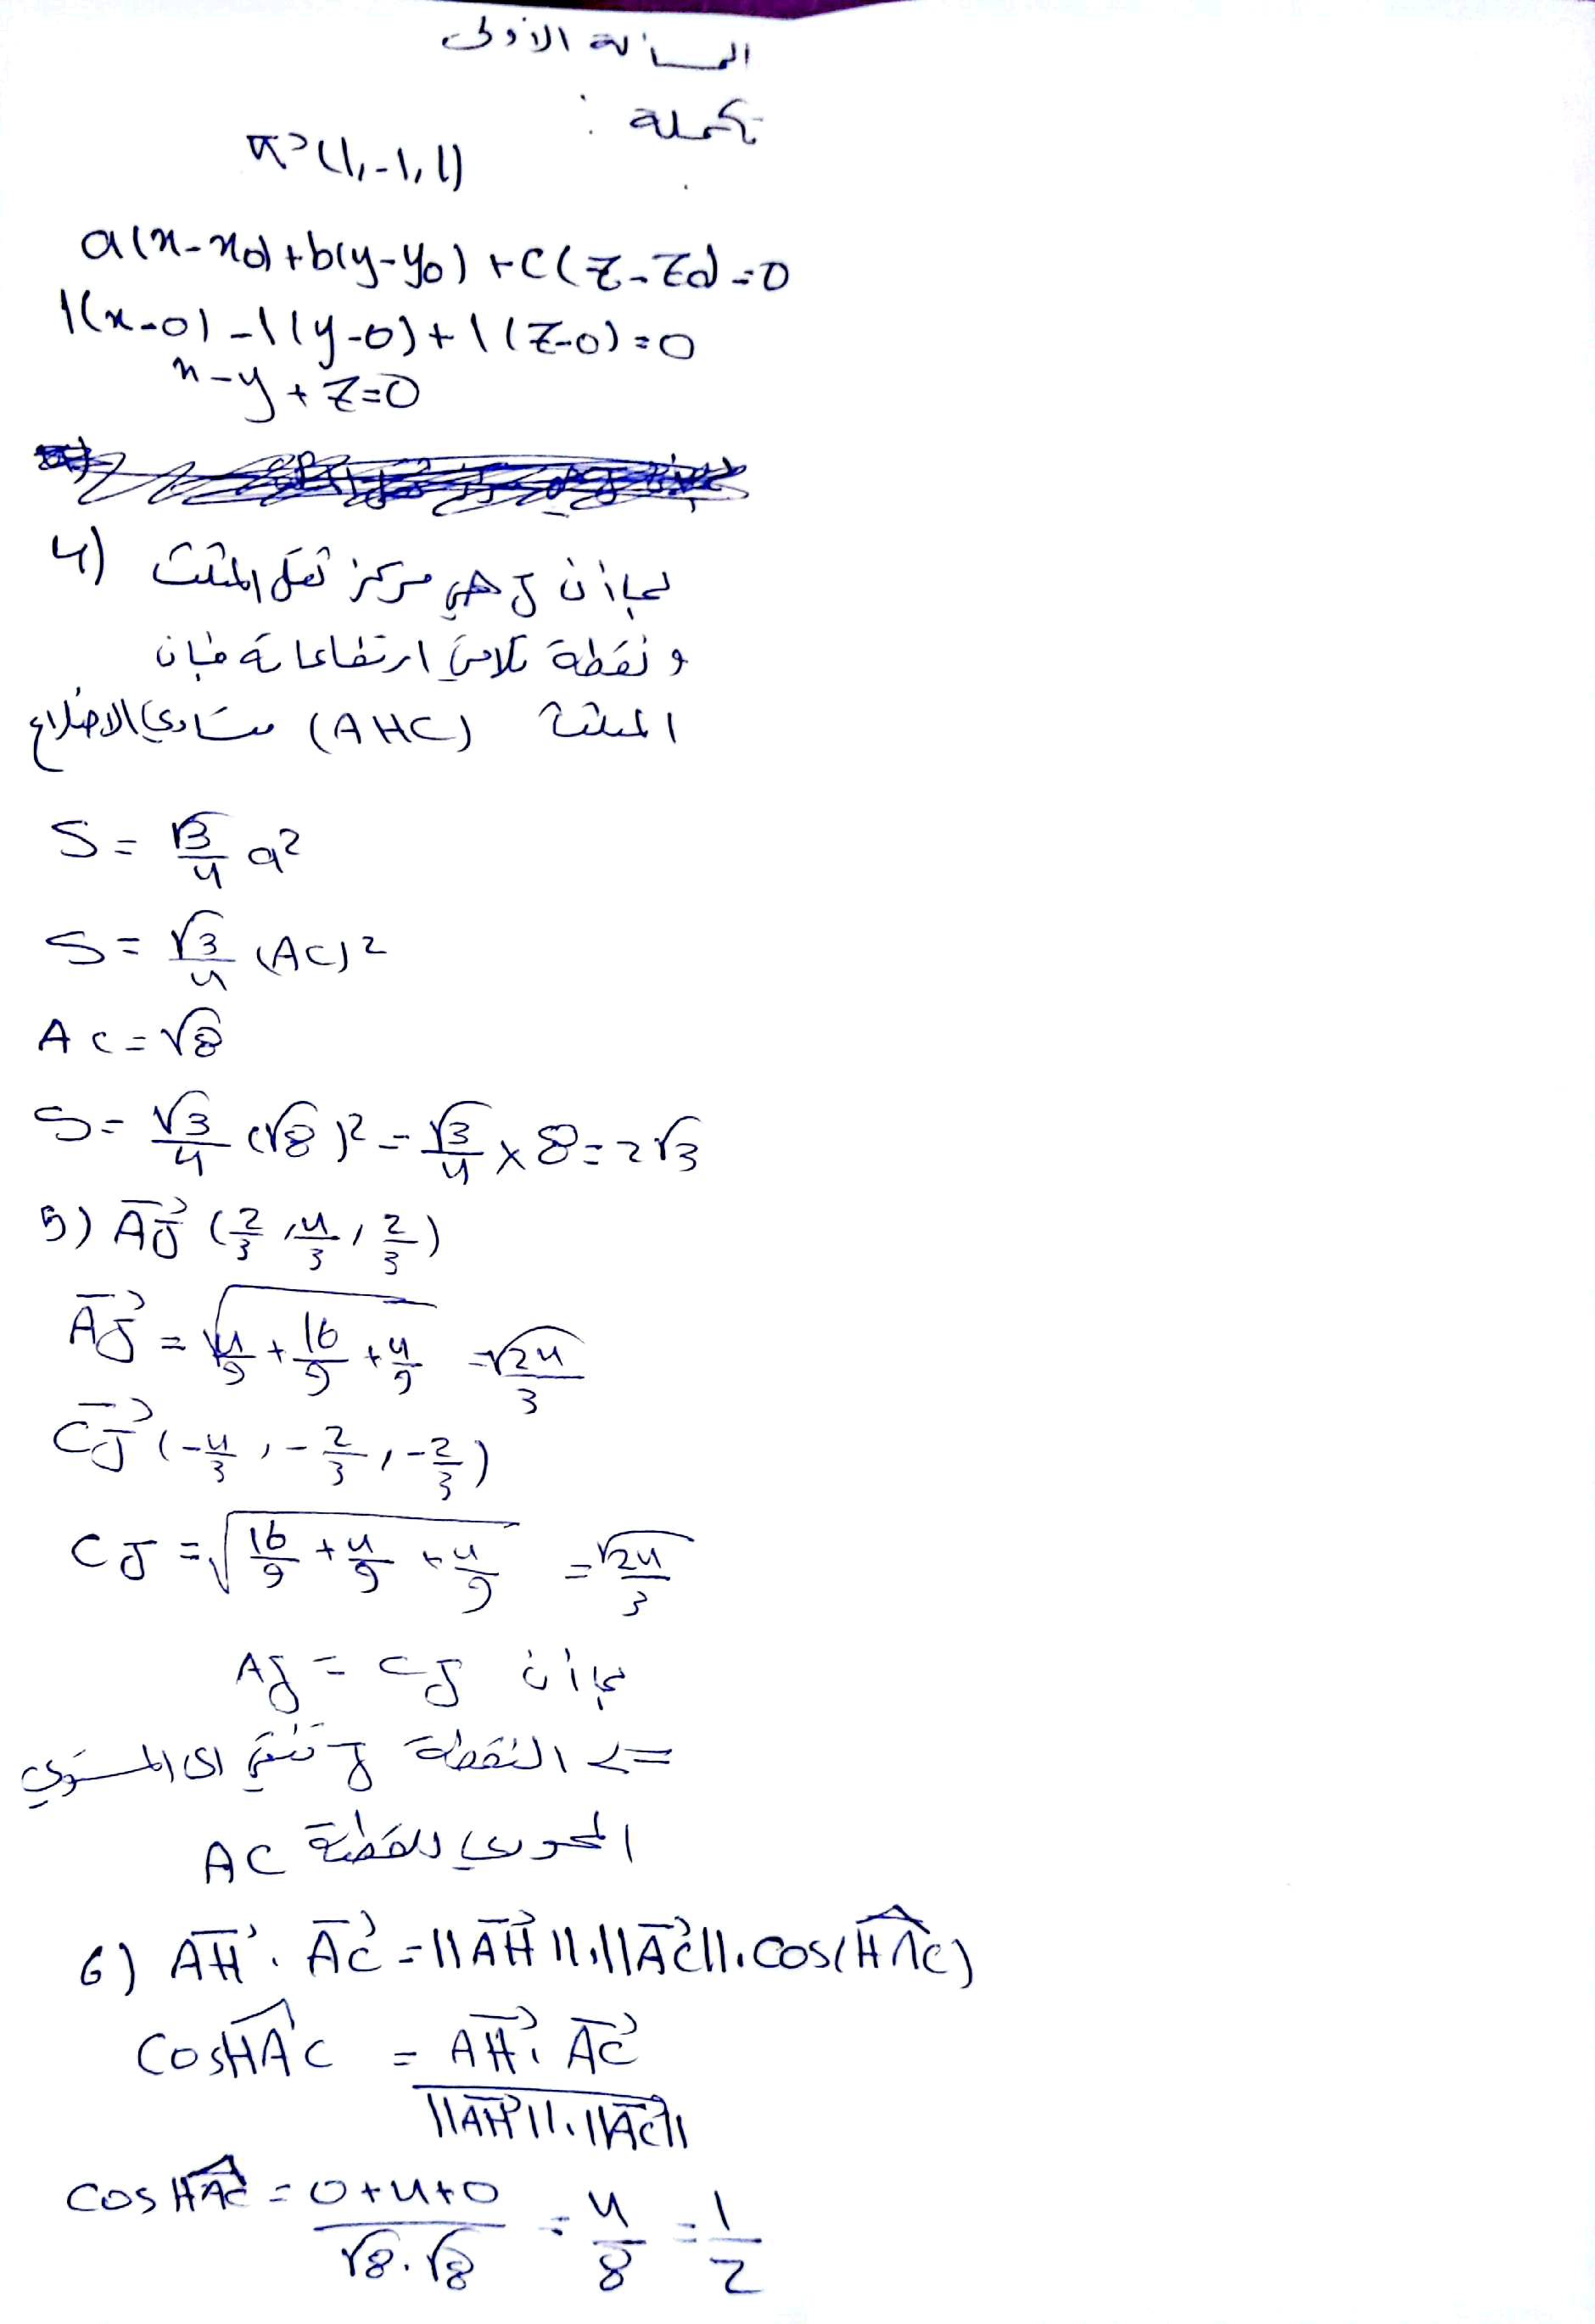 المسألة الأولى
تكملة :
n⃗(1,-1,1)
a(x-x0)+b(y-y0)+c(z-z0)=0
1(x-0)-1(y-0)+1(z-0)=0
x-y+z=0
4) بما أن J هي مركز ثقل المثلث
و نقطة تلاقي ارتفاعاته فإن
المثلث (AHC) متساوي الاضلاع
S = √3/4 a²
S = √3/4 (AC)²
AC = √8
S = √3/4 (√8)² = √3/4 × 8 = 2√3
5) AJ⃗ (2/3, 4/3, 2/3)
AJ⃗ = √(4/9 + 16/9 + 4/9) = √24/3
CJ⃗ (-4/3, -2/3, -2/3)
CJ = √(16/9 + 4/9 + 4/9) = √24/3
بما أن AJ = CJ
=> النقطة J تنتمي الى المستوي
المحوري للقطعة AC
6) AH⃗ . AC⃗ = ||AH⃗||.||AC⃗||.cos(HAC)
cosHAC = AH⃗ . AC⃗ / ||AH⃗||.||AC⃗||
cos HAC = 0+4+0 / √8.√8 = 4/8 = 1/2